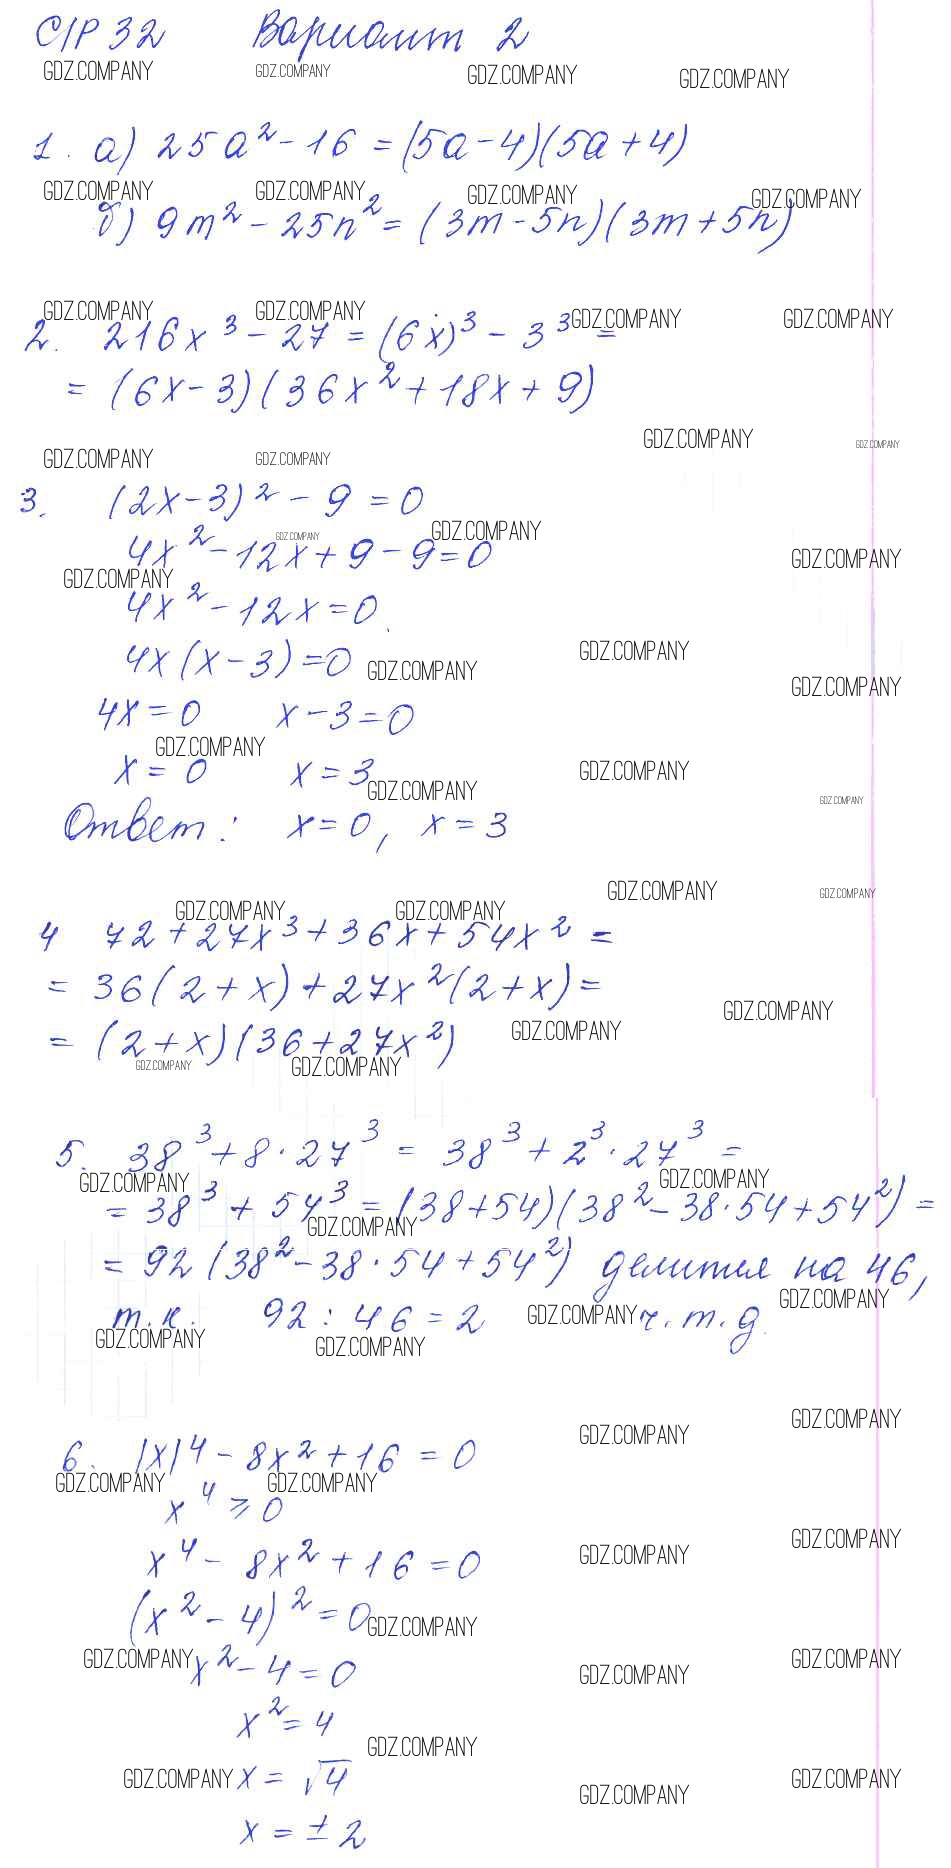 С/Р 32 Вариант 2
GDZ.COMPANY GDZ.COMPANY GDZ.COMPANY GDZ.COMPANY
1. а) 25a² - 16 = (5a - 4)(5a + 4)
GDZ.COMPANY GDZ.COMPANY GDZ.COMPANY GDZ.COMPANY
б) 9m² - 25n² = (3m - 5n)(3m + 5n)
GDZ.COMPANY GDZ.COMPANY GDZ.COMPANY GDZ.COMPANY
2. 216x³ - 27 = (6x)³ - 3³ =
= (6x - 3)(36x² + 18x + 9)
GDZ.COMPANY GDZ.COMPANY GDZ.COMPANY GDZ.COMPANY
3. (2x - 3)² - 9 = 0
GDZ.COMPANY GDZ.COMPANY
4x² - 12x + 9 - 9 = 0
GDZ.COMPANY GDZ.COMPANY
4x² - 12x = 0
4x(x - 3) = 0 GDZ.COMPANY GDZ.COMPANY GDZ.COMPANY
4x = 0 x - 3 = 0
GDZ.COMPANY
x = 0 x = 3 GDZ.COMPANY GDZ.COMPANY GDZ.COMPANY
Ответ: x = 0, x = 3
GDZ.COMPANY GDZ.COMPANY GDZ.COMPANY GDZ.COMPANY
4 72 + 27x³ + 36x + 54x² =
= 36(2 + x) + 27x²(2 + x) =
GDZ.COMPANY GDZ.COMPANY
= (2 + x)(36 + 27x²)
GDZ.COMPANY GDZ.COMPANY
5. 38³ + 8 · 27³ = 38³ + 2³ · 27³ =
GDZ.COMPANY GDZ.COMPANY
= 38³ + 54³ = (38 + 54)(38² - 38 · 54 + 54²) =
GDZ.COMPANY
= 92(38² - 38 · 54 + 54²) делится на 46,
GDZ.COMPANY
т.к. 92 : 46 = 2 GDZ.COMPANY ч.т.д.
GDZ.COMPANY GDZ.COMPANY
GDZ.COMPANY GDZ.COMPANY
6. |x|⁴ - 8x² + 16 = 0
GDZ.COMPANY GDZ.COMPANY
x⁴ ⩾ 0
x⁴ - 8x² + 16 = 0 GDZ.COMPANY GDZ.COMPANY
(x² - 4)² = 0 GDZ.COMPANY
GDZ.COMPANY x² - 4 = 0 GDZ.COMPANY GDZ.COMPANY
x² = 4
GDZ.COMPANY
GDZ.COMPANY x = √4 GDZ.COMPANY GDZ.COMPANY
x = ± 2